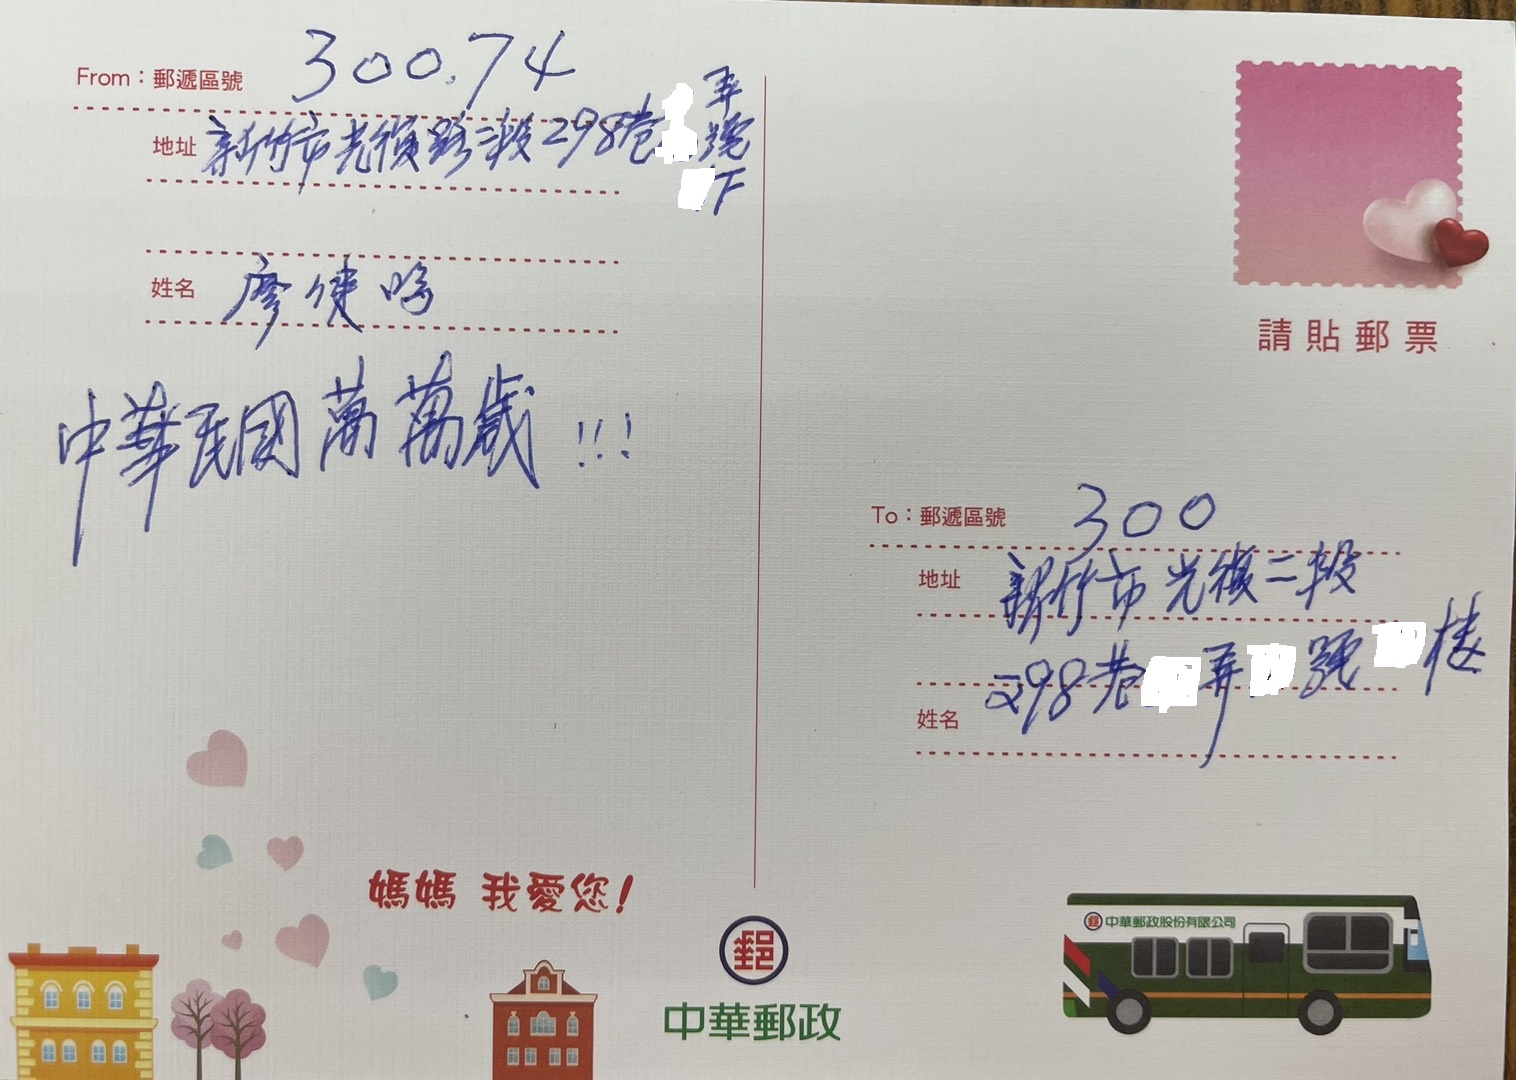 From：郵遞區號 300.74
弄
地址 新竹市光復路二段298巷 號
F
姓名 廖健
中華民國萬萬歲!!!
請貼郵票
To：郵遞區號 300
地址 新竹市光復二段
298巷 弄 號 樓
姓名
媽媽 我愛您!
郵
中華郵政
郵 中華郵政股份有限公司